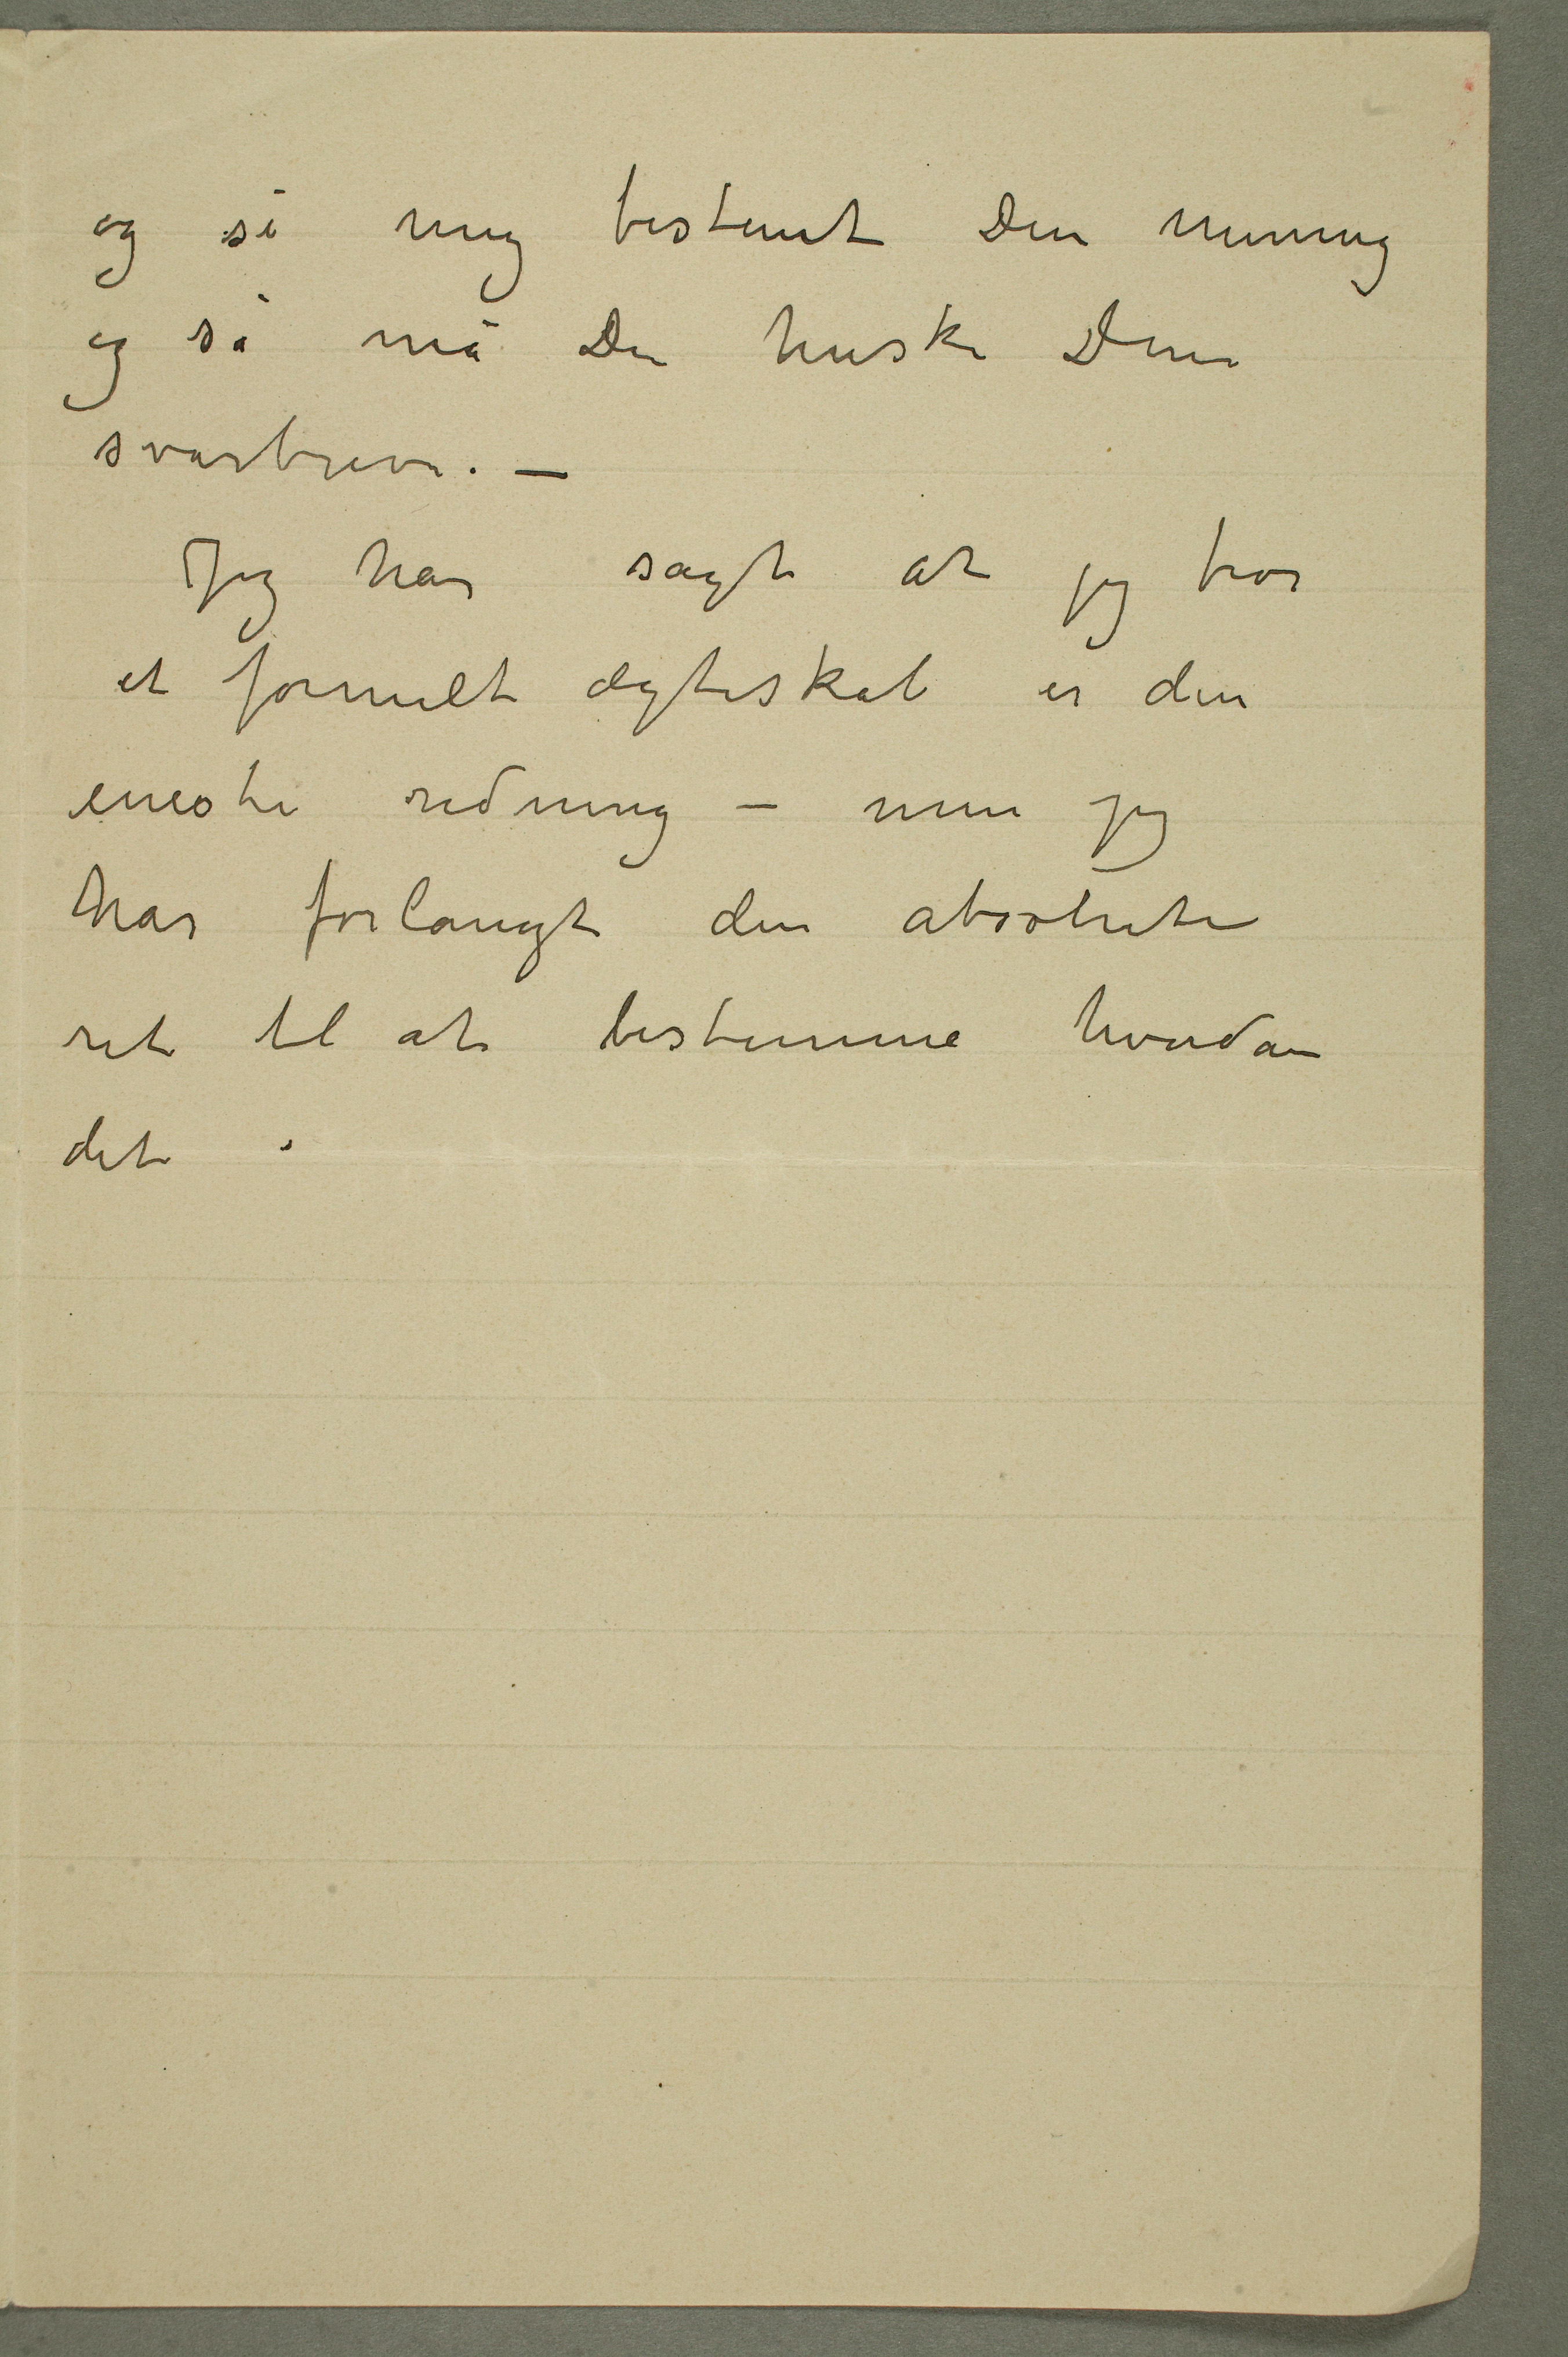 og si mig bestemt Din mening
og så må Du huske Dine
svarbreve. —
Jeg har sagt at jeg tror
et formelt ægteskab er den
eneste redning – men jeg
har forlangt den absolute
ret til at bestemme hvordan
det